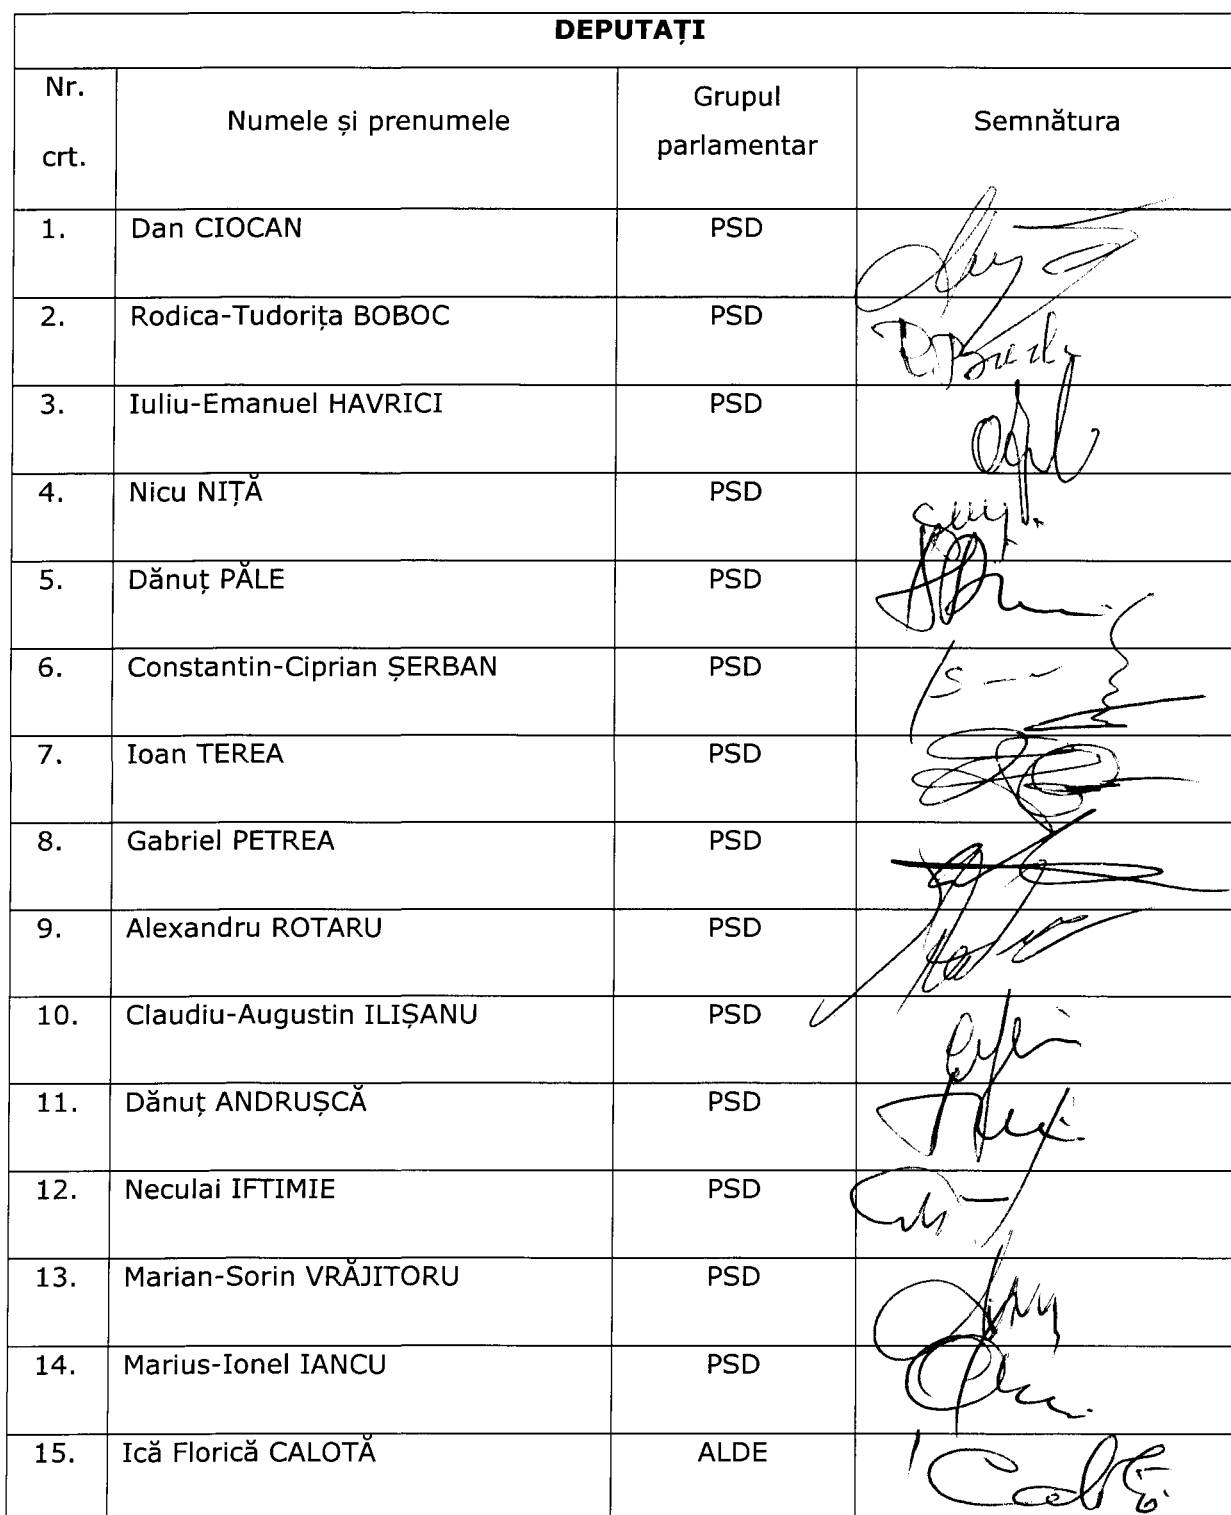 DEPUTAȚI
Nr. crt. Numele și prenumele Grupul parlamentar Semnătura
1. Dan CIOCAN PSD
2. Rodica-Tudorița BOBOC PSD
3. Iuliu-Emanuel HAVRICI PSD
4. Nicu NIȚĂ PSD
5. Dănuț PĂLE PSD
6. Constantin-Ciprian ȘERBAN PSD
7. Ioan TEREA PSD
8. Gabriel PETREA PSD
9. Alexandru ROTARU PSD
10. Claudiu-Augustin ILIȘANU PSD
11. Dănuț ANDRUȘCĂ PSD
12. Neculai IFTIMIE PSD
13. Marian-Sorin VRĂJITORU PSD
14. Marius-Ionel IANCU PSD
15. Ică Florică CALOTĂ ALDE